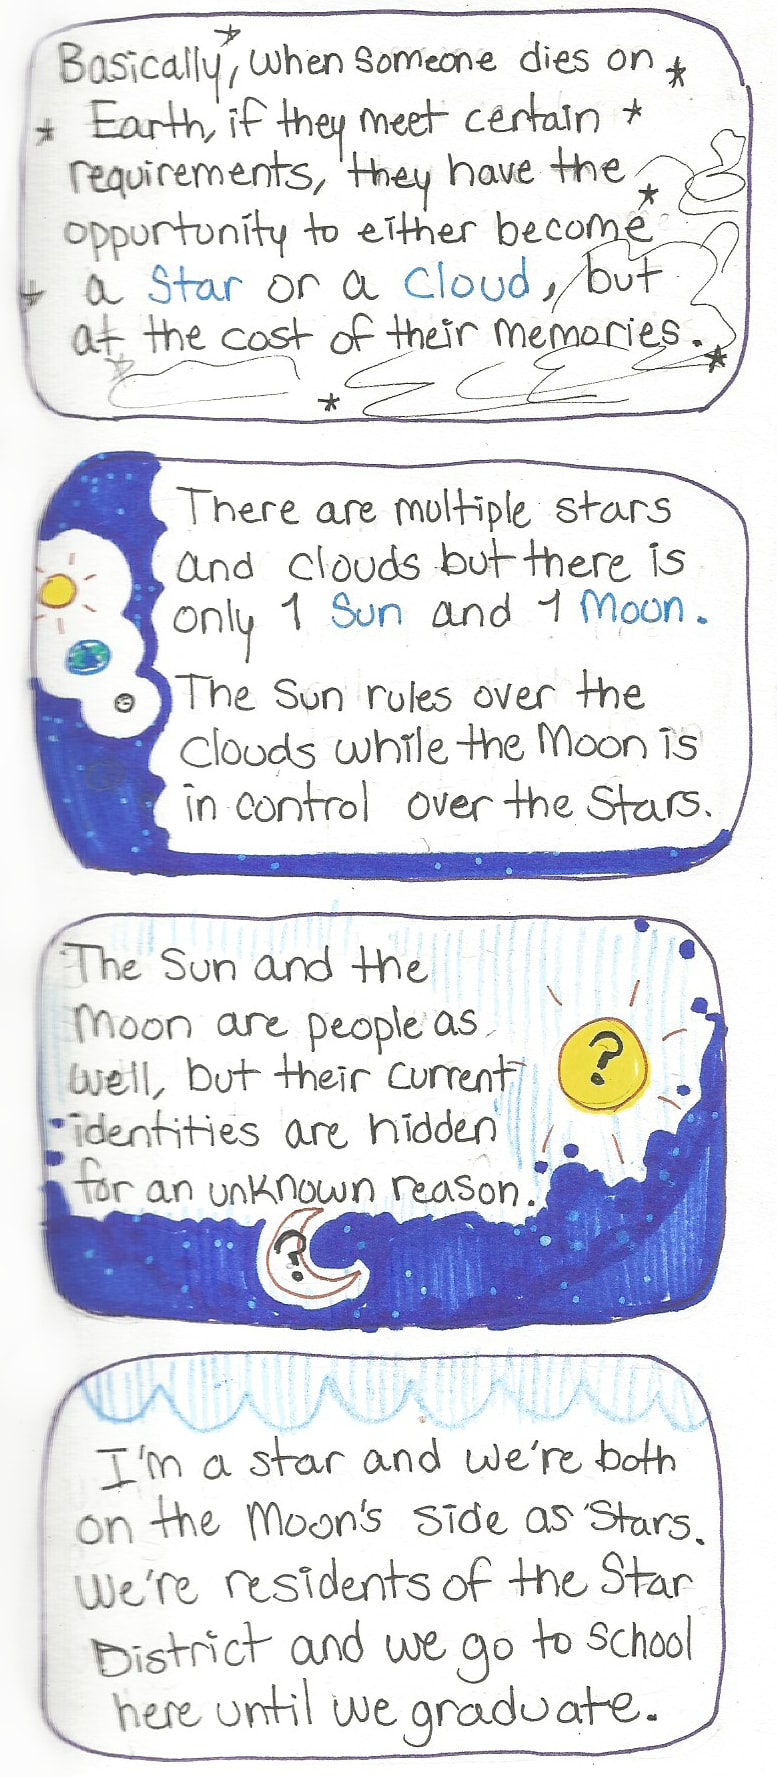 Basically, when someone dies on
Earth, if they meet certain
requirements, they have the
oppurtunity to either become
a Star or a Cloud, but
at the cost of their memories.
There are multiple stars
and clouds but there is
only 1 Sun and 1 Moon.
The Sun rules over the
clouds while the Moon is
in control over the Stars.
The Sun and the
Moon are people as
well, but their current
identities are hidden
for an unknown reason.
?
?
I'm a star and we're both
on the Moon's side as Stars.
We're residents of the Star
District and we go to school
here until we graduate.